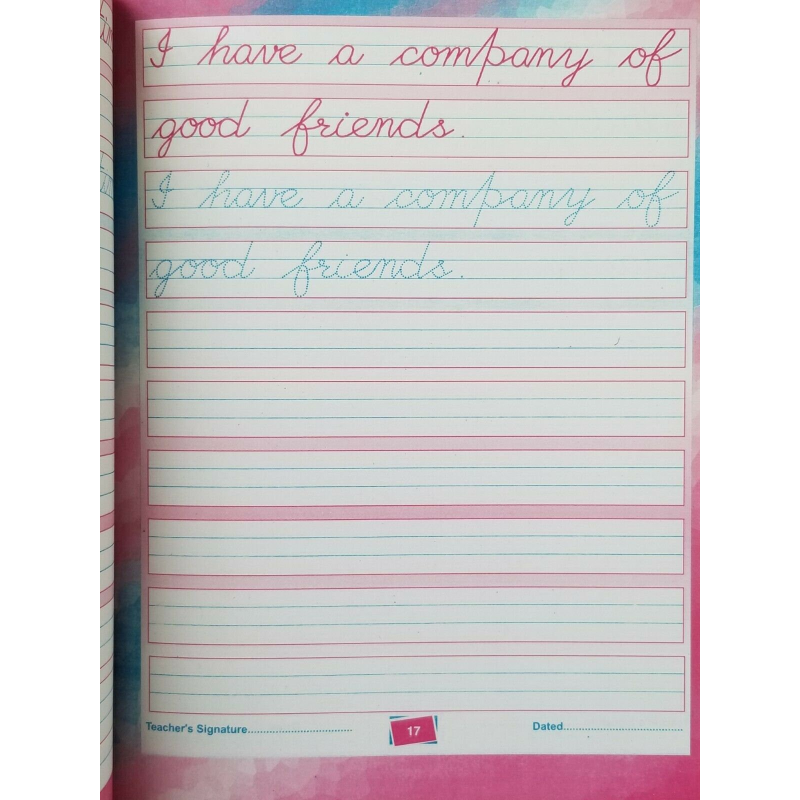 I have a company of
good friends.
I have a company of
good friends.
Teacher's Signature................................ 17 Dated....................................